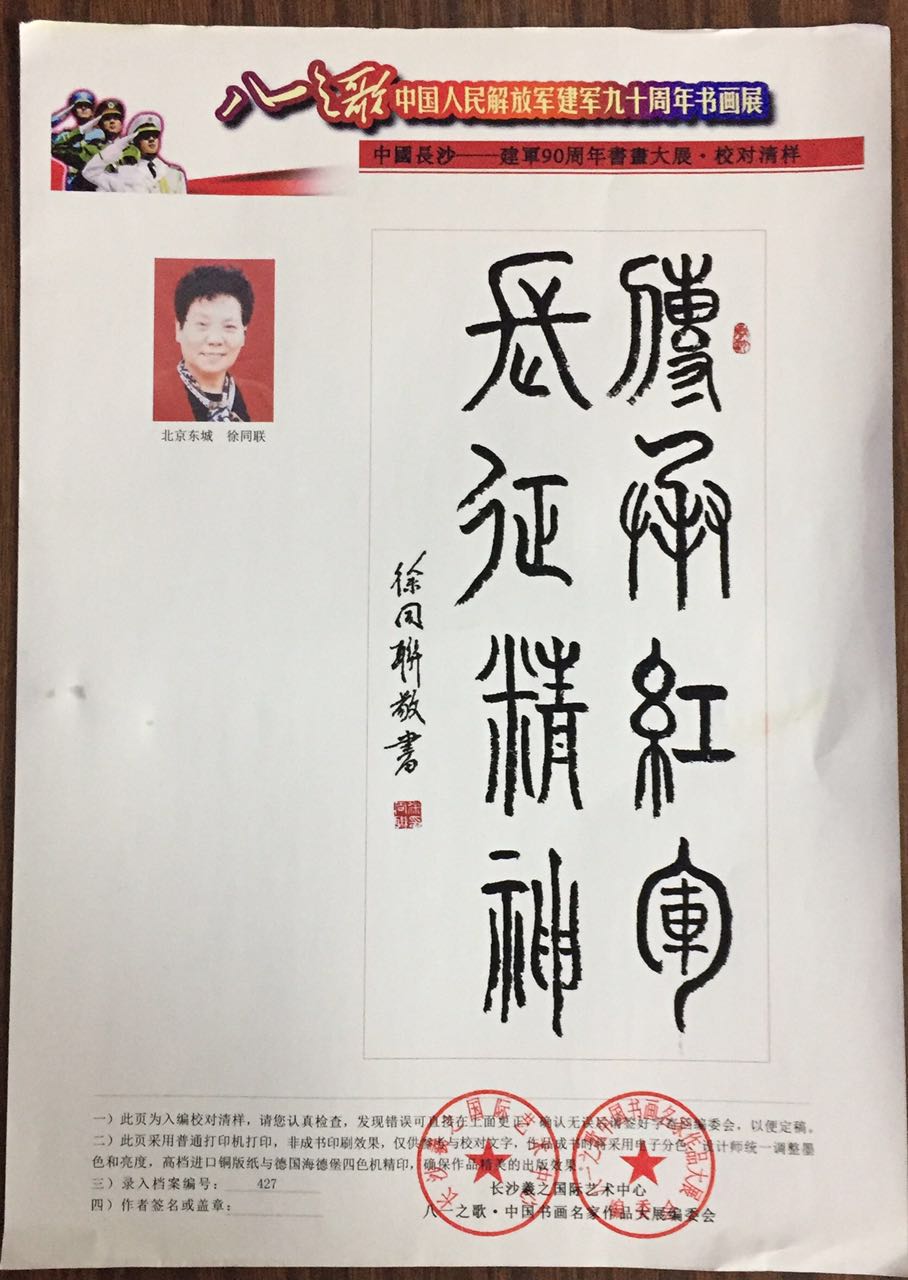 八一之歌 中国人民解放军建军九十周年书画展
中國長沙——建軍90周年書畫大展·校对清样
北京东城 徐同联
傳承紅軍
長征精神
徐同聯敬書
一）此页为入编校对清样，请您认真检查，发现错误可直接在上面更正，确认无误后请签好字寄回编委会，以便定稿。
二）此页采用普通打印机打印，非成书印刷效果，仅供参考与校对文字，作品成书时将采用电子分色、设计师统一调整墨
色和亮度，高档进口铜版纸与德国海德堡四色机精印，确保作品精美的出版效果。
三）录入档案编号： 427
四）作者签名或盖章：
长沙羲之国际艺术中心
八一之歌·中国书画名家作品大展编委会